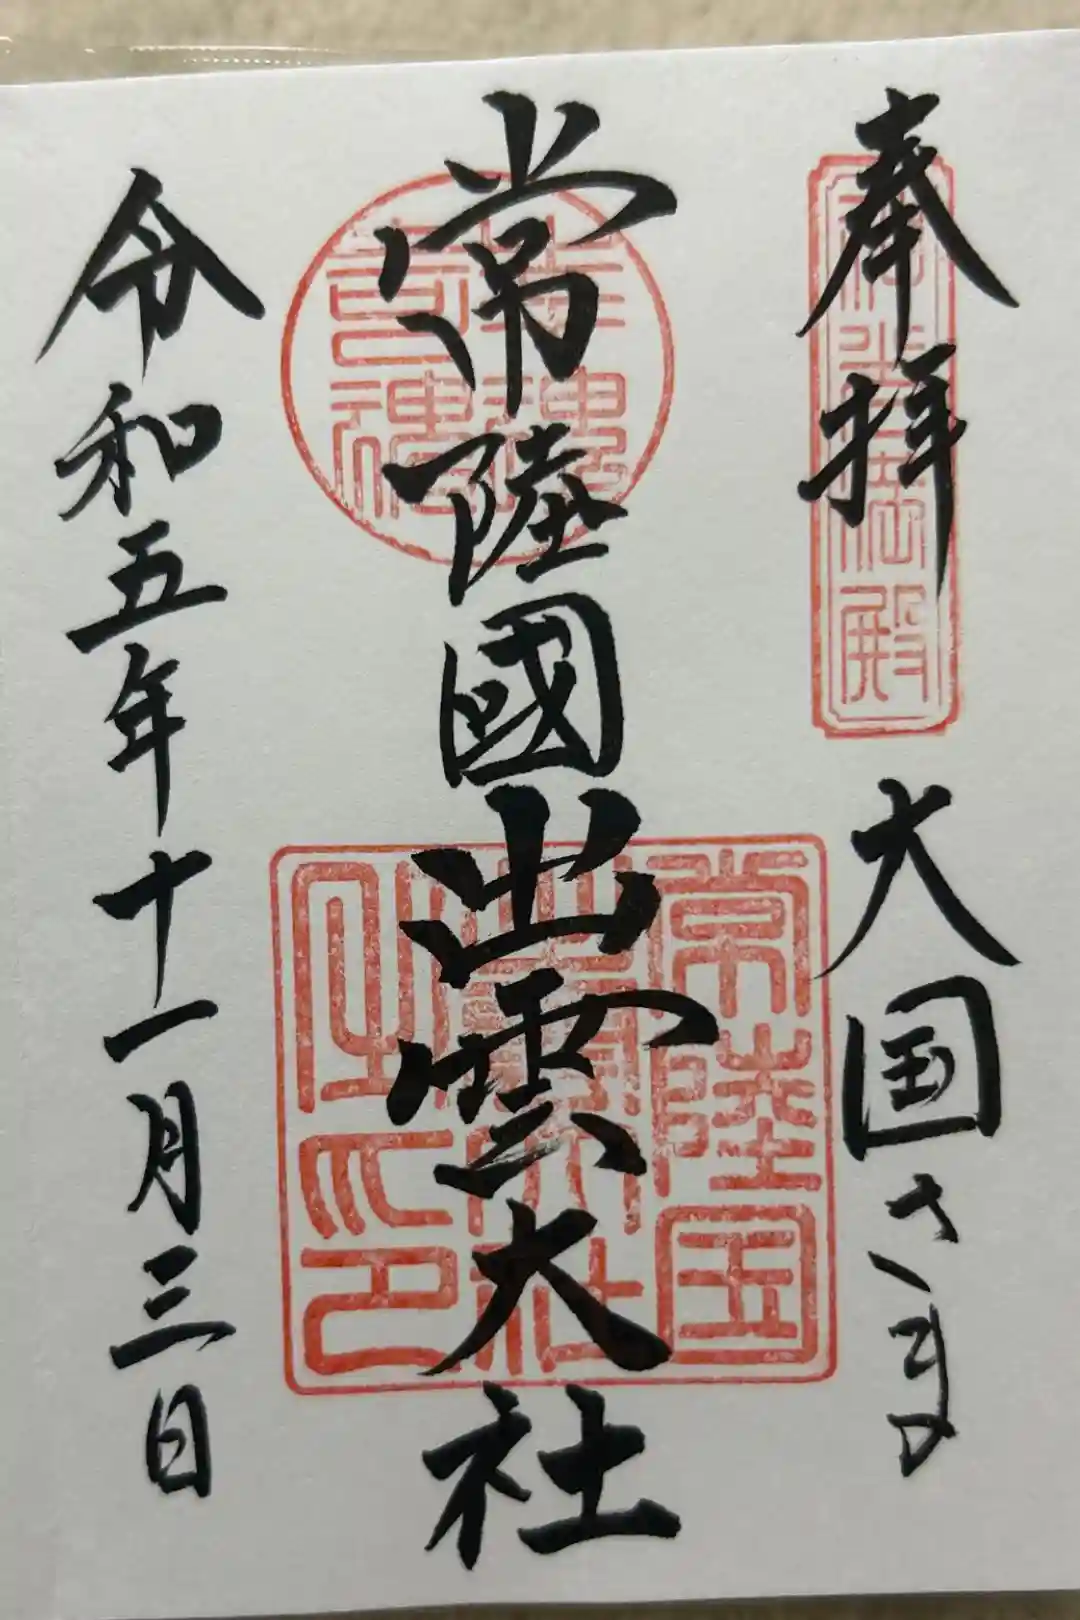 奉拝
大国さま
常陸國出雲大社
常陸国
出雲大社
之印
幸魂
奇魂
令和五年十一月三日